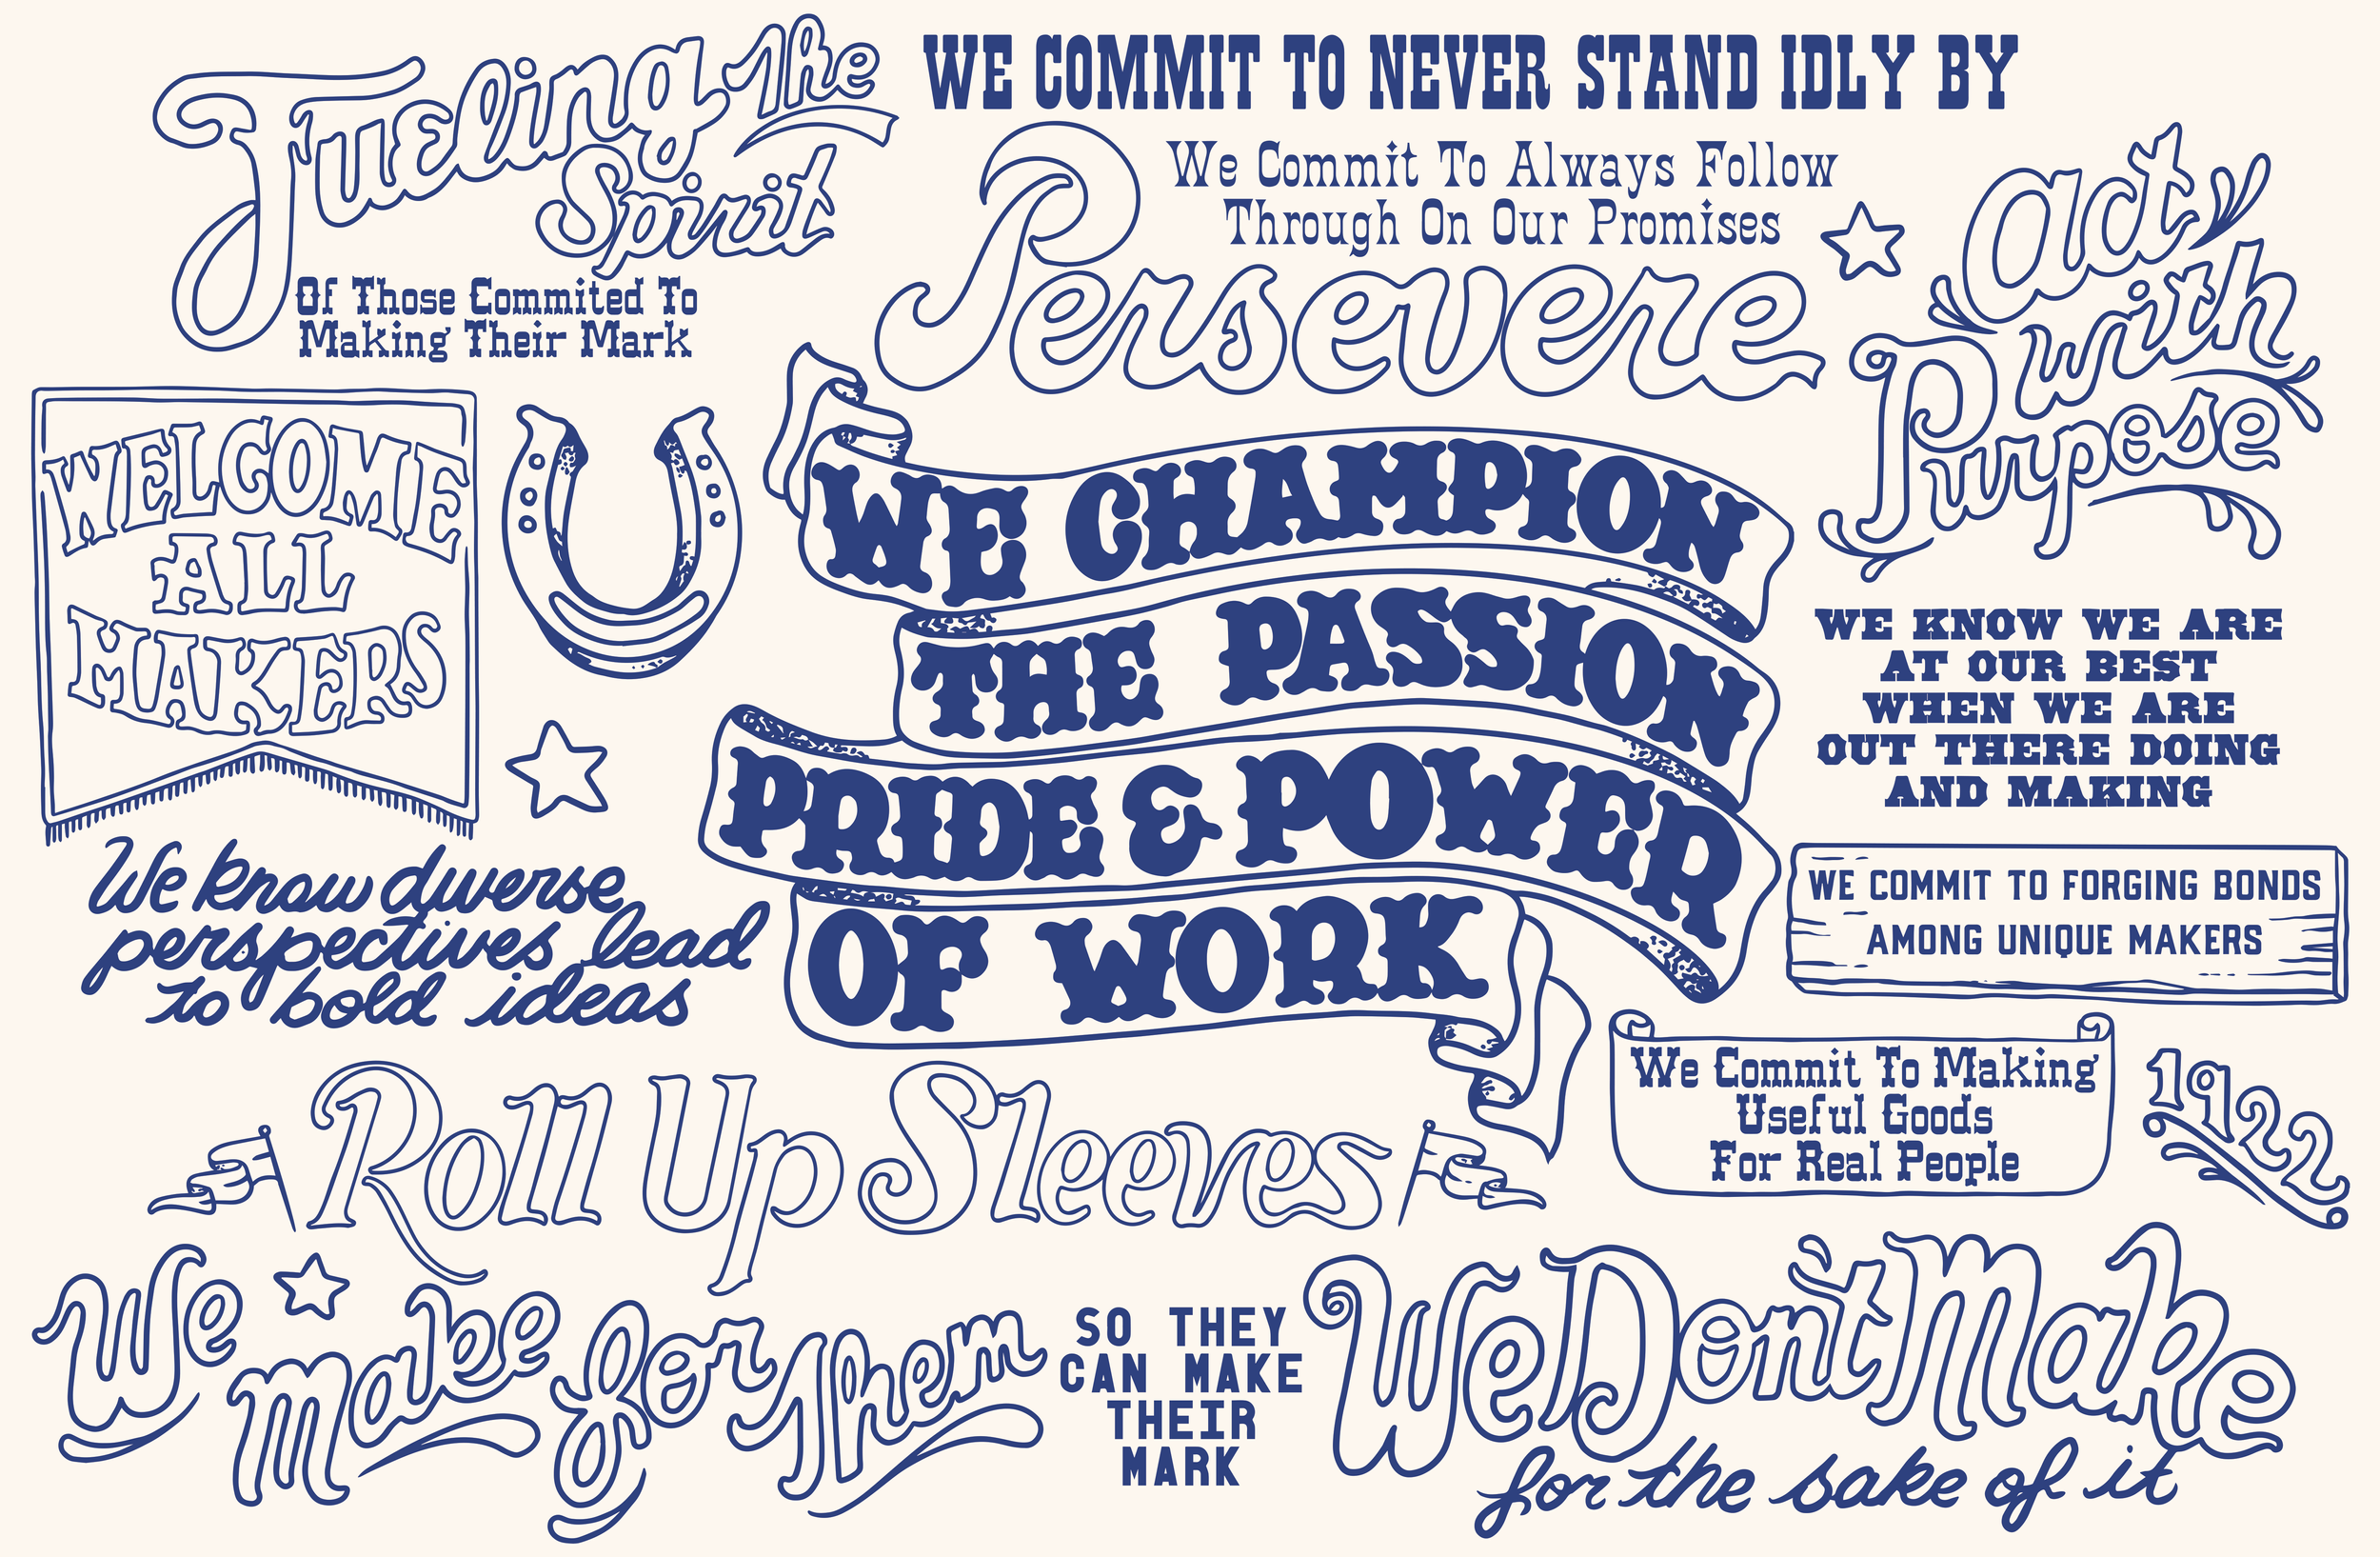 Fueling The
Spirit
Of Those Commited To
Making Their Mark
WE COMMIT TO NEVER STAND IDLY BY
We Commit To Always Follow
Through On Our Promises
Persevere
act
with
Purpose
WELCOME
ALL
MAKERS
WE CHAMPION
THE PASSION
PRIDE & POWER
OF WORK
WE KNOW WE ARE
AT OUR BEST
WHEN WE ARE
OUT THERE DOING
AND MAKING
We know diverse
perspectives lead
to bold ideas
WE COMMIT TO FORGING BONDS
AMONG UNIQUE MAKERS
We Commit To Making
Useful Goods
For Real People
1922
Roll Up Sleeves
We
make for Them
SO THEY
CAN MAKE
THEIR
MARK
We Don't Make
for the sake of it